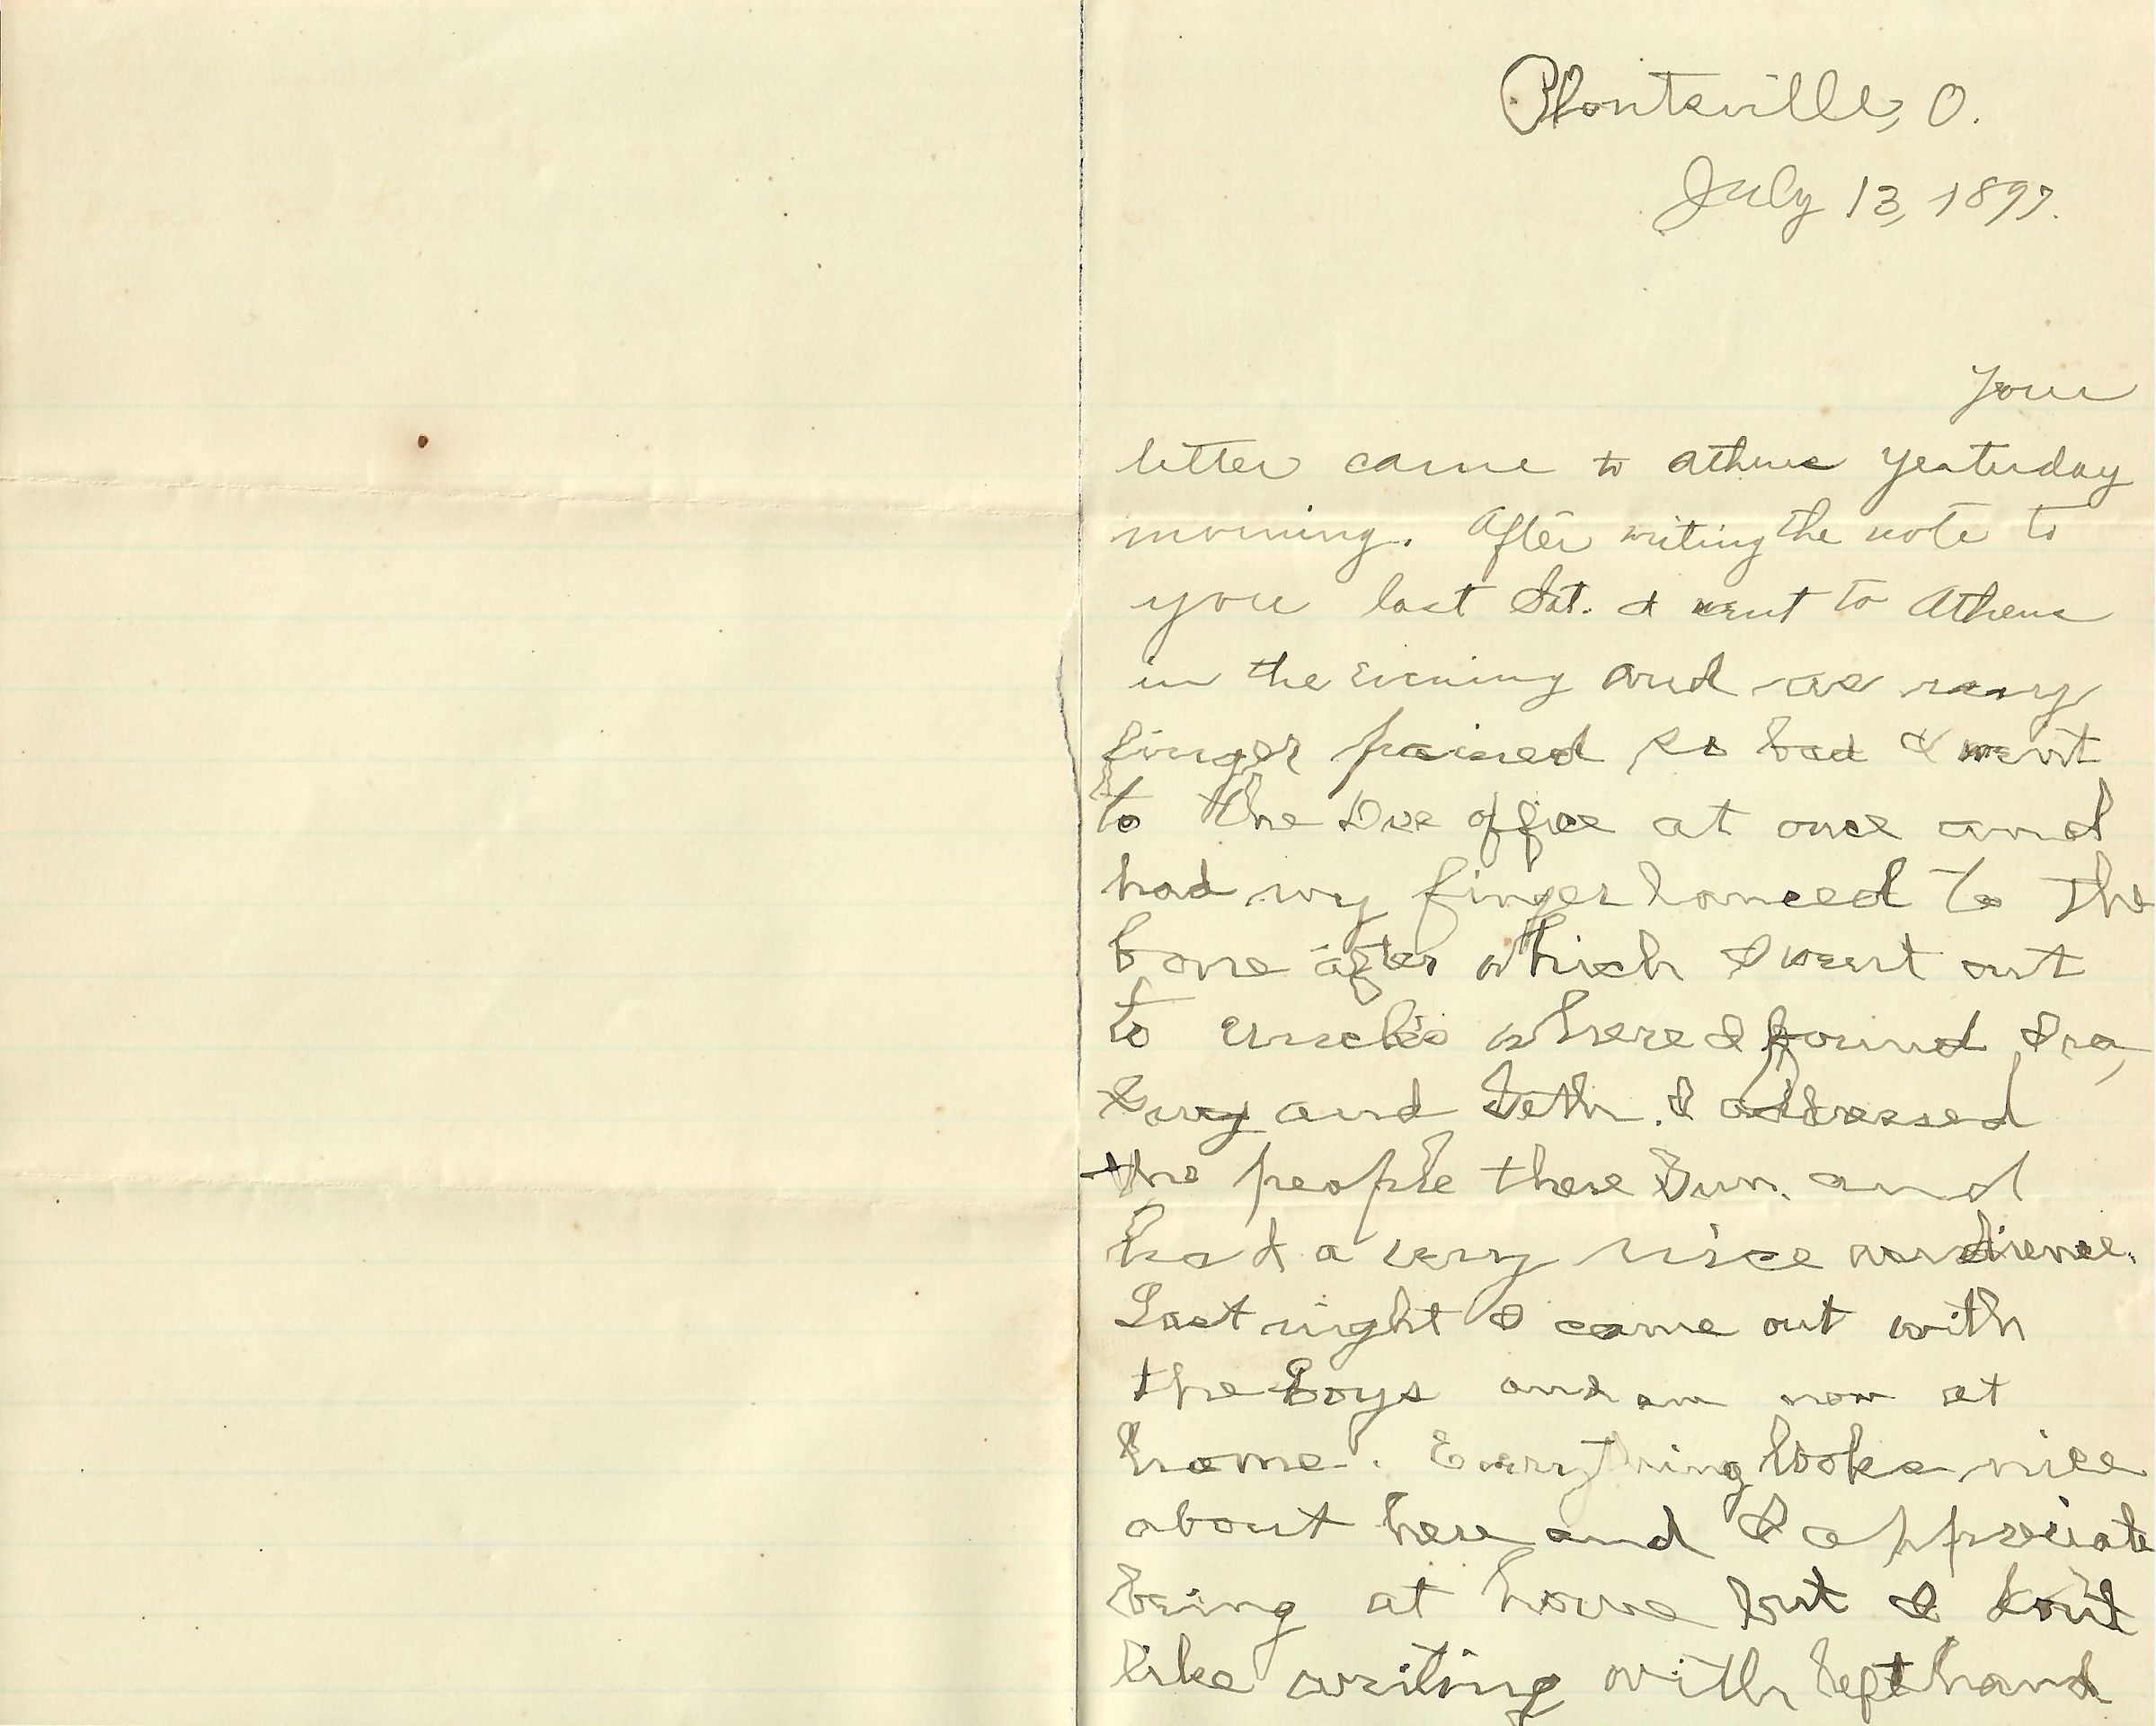 Plontsville, O.
July 13, 1897.
Your
letter came to Athens yesterday
morning. After writing the note to
you last Sat. I went to Athens
in the evening and as my
finger pained so bad I went
to the Drs office at once and
had my finger lanced to the
bone after which I went out
to Uncle's where I found Ira,
Guy and Seth. I addressed
the people there Sun. and
had a very nice audience.
Last night I came out with
the Boys and am now at
home. Everything looks nice
about here and I appreciate
being at home but I don't
like writing with left hand